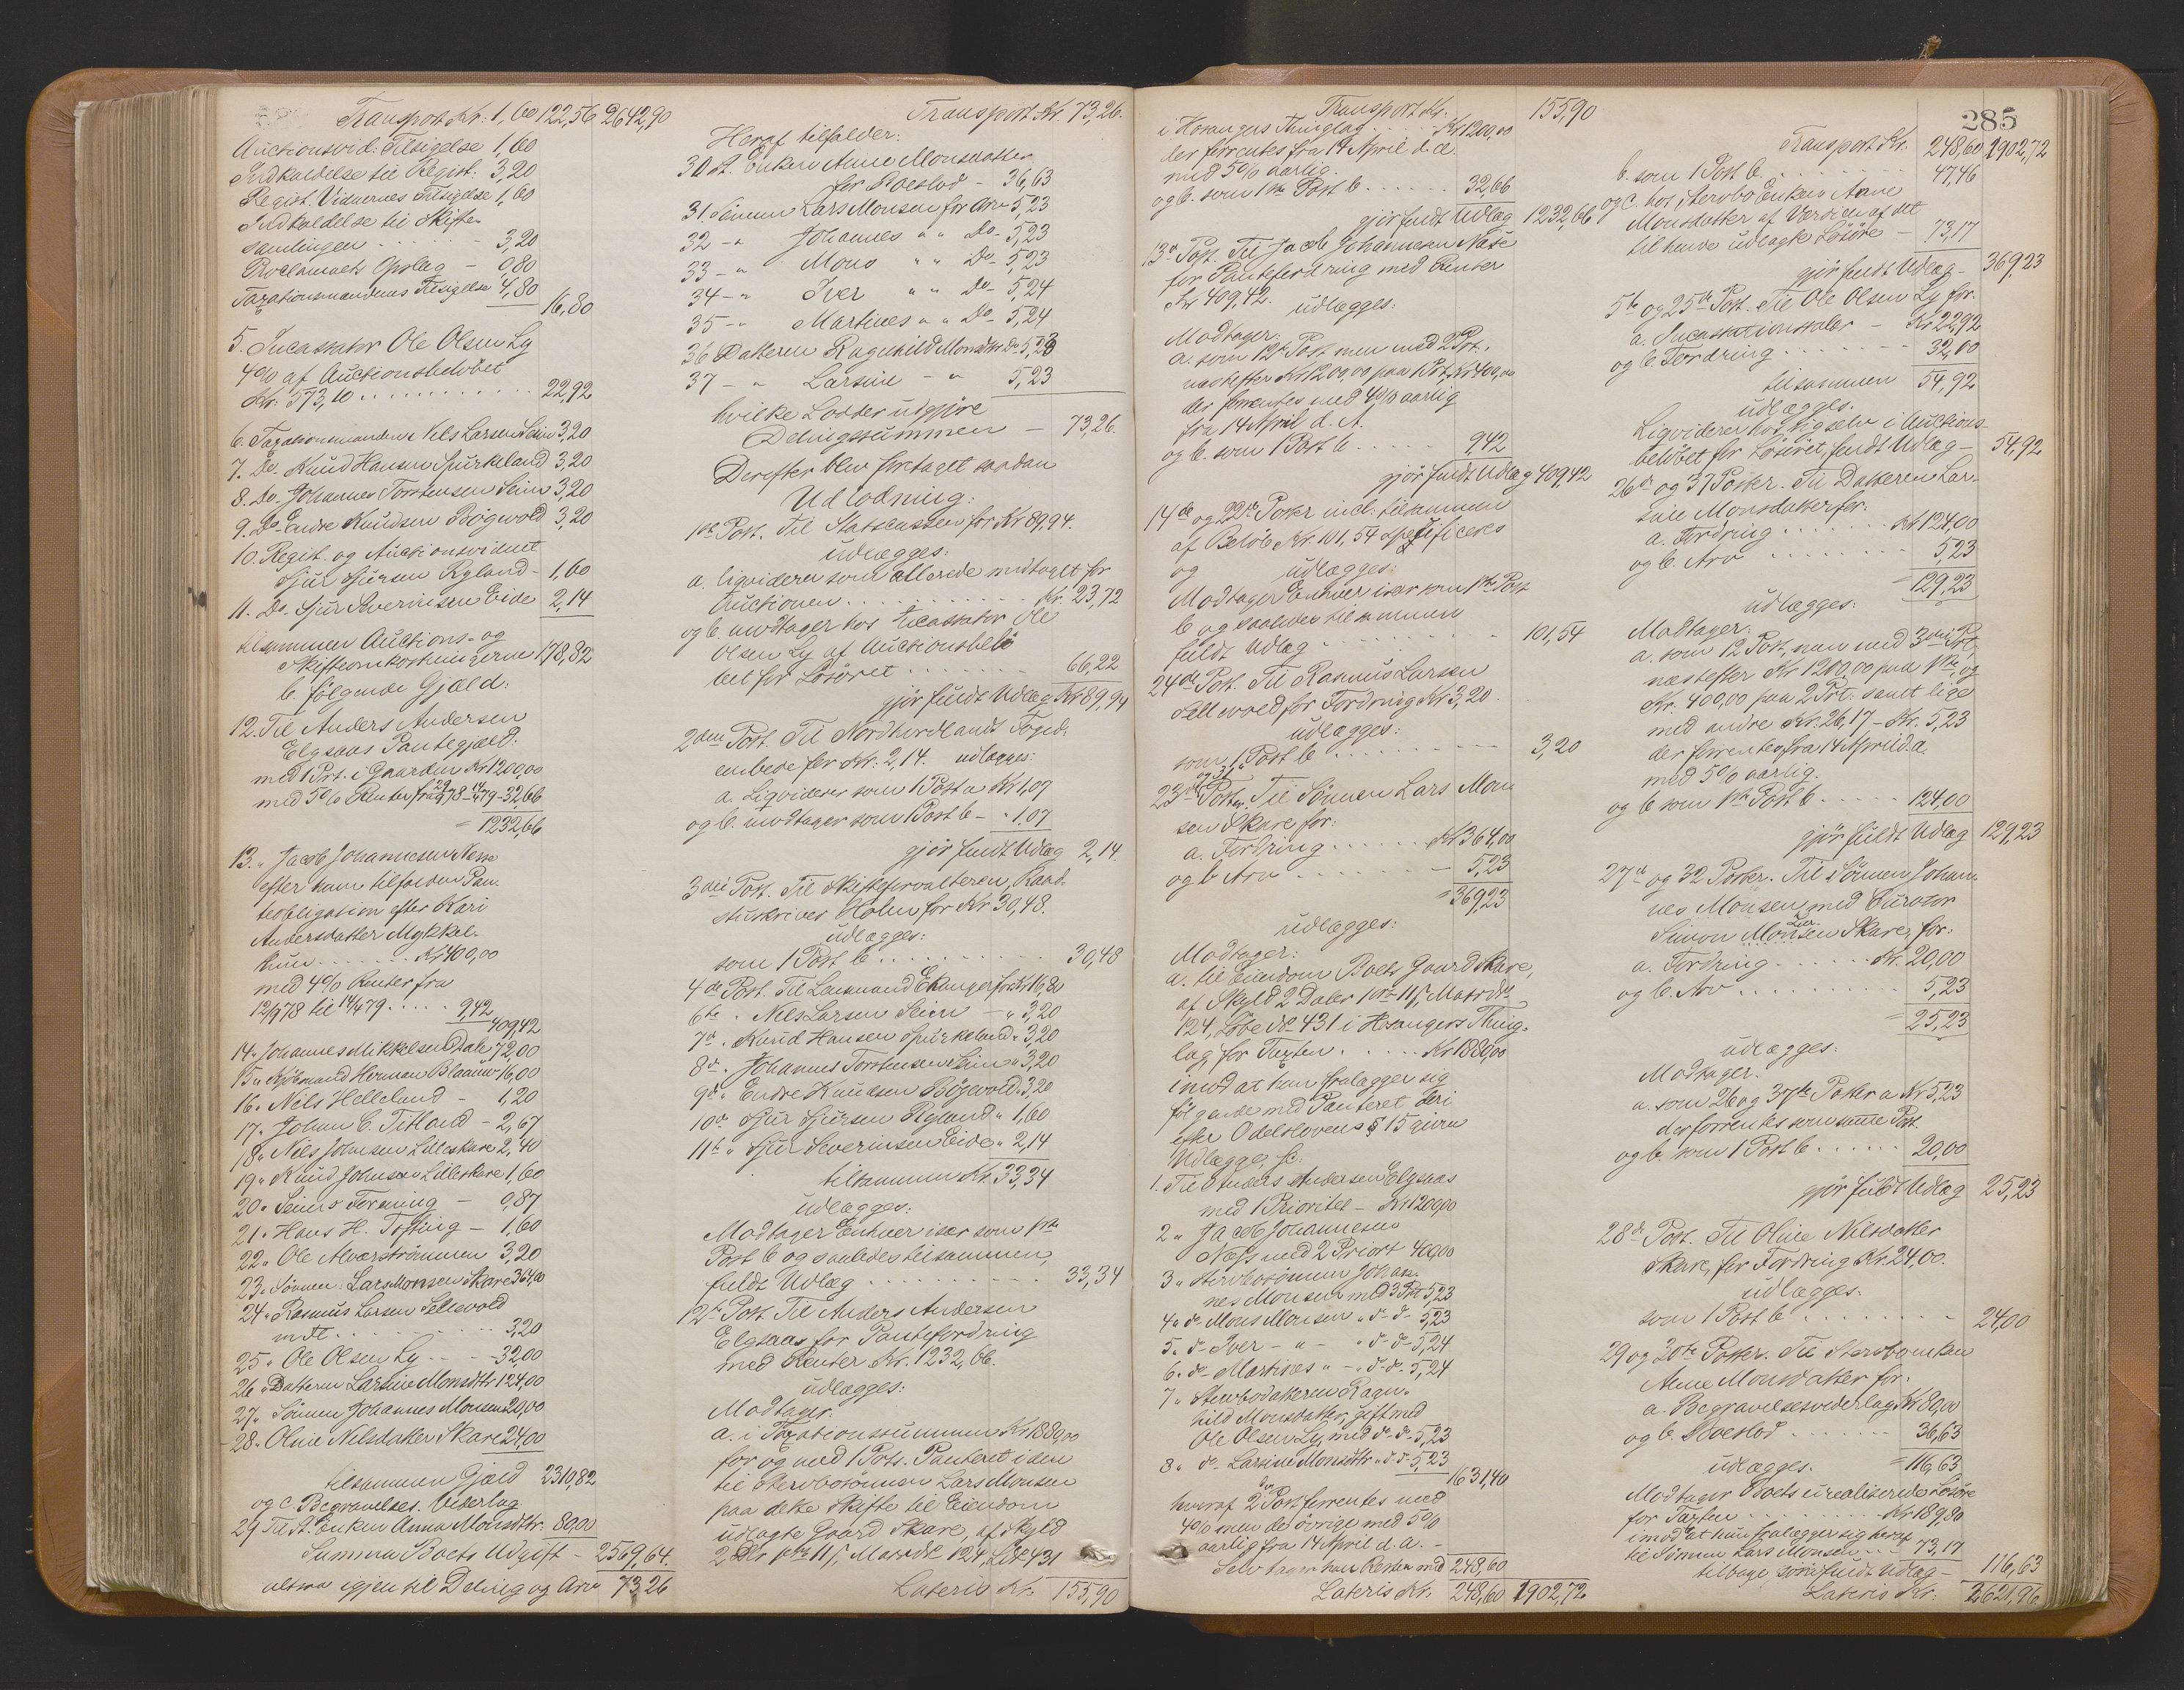 Transport Kr. 1,60 122,56 2642,90
Auctionsvid: Tilsigelse 1,60
Indkaldelse til Regist. 3,20
Regist. Vidnernes Tilsigelse 1,60
Indkaldelse til Skifte-
samlingen 3,20
Proclamaets Opslag - 0,80
Taxationsmændenes Tilsigelse 4,80
16,80
5. Incassator Ole Olsen Ly
4% af Auctionsbeløbet
Kr. 573,10 22,92
6. Taxationsmanden Nels Larsen Seim 3,20
7. Do. Knud Hansen Spurkeland 3,20
8. Do. Johannes Torstensen Seim 3,20
9. Do. Endre Knudsen Bøgwold 3,20
10. Regist. og Auctionsvidnet
Sjur Sjursen Ryland - 1,60
11. Do. Sjur Severinsen Eide 2,14
tilsammen Auctions- og
Skifteomkostningerne 178,82
b. følgende Gjæld:
12. Til Anders Andersen
Elgsaas Pantegjæld:
med 1 Prt. i Gaarden Kr 1200,00
med 5% Renter fra 29/9 78 - 14/4 79 - 32,66
= 1232,66
13. " Jacob Johannesen Nesse
efter ham tilfalden Pan-
teobligation efter Kari
Andersdatter Mykkel-
tun Kr 400,00
med 4% Renter fra
12/9 78 til 14/4 79 9,42
409,42
14. " Johannes Mikkelsen Dale 72,00
15. " Kjøbmand Herman Blaauw 16,00
16. " Nils Helleland - 1,20
17. " Johan E. Titland - 2,67
18. " Nils Johnsen Litleskare 2,40
19. " Knud Johnsen Litleskare 1,60
20. " Seims Forening - 0,87
21. " Hans H. Tofting - 1,60
22. " Ole Alværstrømmen 3,20
23. " Sønnen Lars Monsen Skare 364,00
24. " Rasmus Larsen Sellevold
m. fl. 3,20
25. " Ole Olsen Ly 32,00
26. " Datteren Larsine Monsdttr 124,00
27. " Sønnen Johannes Monsen 20,00
28. " Oline Nilsdatter Skare 24,00
tilsammen Gjæld 2310,82
og c. Begravelses-Vederlag
29 Til St. Enken Anna Monsdttr. 80,00
Summa Boets Udgift - 2569,64.
altsaa igjen til Deling og Arv 73,26
Transport Kr. 73,26.
Heraf tilfalder:
30 St. Enken Anne Monsdatter
for Boeslod - 36,63
31. Sønnen Lars Monsen for Arv 5,23
32 - " Johannes " " Do - 5,23
33 - " Mons " " Do - 5,23
34 - " Iver " " Do - 5,24
35 - " Martines " " Do - 5,24
36 Datteren Ragnhild Monsdttr Do 5,23
37 - " Larsine - " 5,23
hvilke Lodder udgjøre
Delingssummen - 73,26.
Derefter blev foretaget saadan
Udlodning:
1ste Post. Til Statscassen for Kr 89,94.
udlægges:
a. liqviderer som allerede modtaget for
Auctionen Kr. 23,72
og b. modtager hos Incassator Ole
Olsen Ly af Auctionsbelø-
bet for Løsøret 66,22
gjør fuldt Udlæg Kr 89,94
2den Post. Til Nordhordlands Foged-
embede for Kr. 2,14. udlægges:
a. Liqviderer som 1 Post a Kr 1,07
og b. modtager som 1 Post b - " 1,07
gjør fuldt Udlæg 2,14.
3die Post. Til Skifteforvalteren, Raad-
stuskriver Holm for Kr 30,48.
udlægges:
som 1 Post b 30,48
4de Post. Til Lensmand Ekanger for Kr 16,80
6te " Nels Larsen Seim - " 3,20
7d " Knud Hansen Spurkeland " 3,20
8d " Johannes Torstensen Seim " 3,20
9d " Endre Knudsen Bøgwold " 3,20
10d " Sjur Sjursen Ryland " 1,60
11te " Sjur Severinsen Eide " 2,14
tilsammen Kr. 33,34
udlægges:
Modtager Enhver især som 1ste
Post b og saaledes tilsammen,
fuldt Udlæg 33,34
12te Post. Til Anders Andersen
Elgsaas for Pantefordring
med Renter Kr. 1232,66.
udlægges:
Modtager:
a. i Taxationssummen Kr 1880,00
for og med 1 Prts. Panteret i den
til Stervbosønnen Lars Monsen
paa dette Skifte til Eiendom
udlagte Gaard Skare, af Skyld
2 Dlr 1 ort 11 s, Matr. No 124, Lb No 431
Lateris Kr. 155,90
Transport Kr. 155,90
i Hosangers Thinglag Kr 1200,00
der forrentes fra 14 April d. a.
med 5% aarlig.
og b. som 1ste Post b 32,66
gjør fuldt Udlæg 1232,66
13d Post. Til Jacob Johannesen Næse
for Pantefordring med Renter
Kr 409,42. udlægges:
Modtager:
a. som 12te Post men med 2 Prt.
næstefter Kr 1200,00 paa 1 Prt. Kr 400,00
der forrentes med 4% aarlig
fra 14 April d. A.
og b. som 1 Post b 9,42
gjør fuldt Udlæg 409,42
14de og 22de Poster incl. tilsammen
af Beløb Kr. 101,54 spesificeres
og udlægges:
Modtager Enhver især som 1ste Post
b og saaledes tilsammen
fuldt Udlæg 101,54
24de Post. Til Rasmus Larsen
Sellevold for Fordring Kr 3,20.
udlægges:
som 1 Post b 3,20
23de og 31 Poster. Til Sønnen Lars Mon-
sen Skare for:
a. Fordring Kr 364,00
og b Arv 5,23
= 369,23
udlægges:
Modtager:
a. til Eiendom Boets Gaard Skare,
af Skyld 2 Daler 1 ort 11 s, Matr. No
124, Løbe No 431 i Hosangers Thing-
lag, for Taxten Kr 1880,00
imod at han fralægger sig
følgende med Panteret deri
efter Odelslovens § 15 givne
Udlæg sc:
1. Til Anders Andersen Elgsaas
med 1 Prioritet - Kr 1200,00
2 " Jacob Johannesen
Næss med 2 Priort 400,00
3 " Stervbosønnen Johan-
nes Monsen med 3 Prt 5,23
4 " do Mons Monsen " do - do - 5,23
5. do Iver - " - " do - do - 5,24
6. do Martines " - " do - do - 5,24
7 " Stervbodatteren Ragn-
hild Monsdatter, gift med
Ole Olsen Ly, med do - do - 5,23
8 " do Larsine Monsdttr " do do 5,23
1631,40
hvoraf 2den Post forrentes med
4% men de øvrige med 5%
aarlig fra 14 April d. a. -
Selv tager han Resten med 248,60
Lateris Kr. 248,60 1902,72
285
Transport Kr. 248,60 1902,72
b. som 1 Post b. 47,46
og c. hos Stervbo Enken Anne
Monsdatter af Værdien af det
til hende udlagte Løsøre - 73,17
gjør fuldt Udlæg - 369,23
5te og 25de Post. Til Ole Olsen Ly for:
a. Incassationssaler - Kr 22,92
og b. Fordring 32,00
tilsammen 54,92
udlægges.
Liqviderer hos sig selv i Auctions-
beløbet for Løsøret, fuldt Udlæg - 54,92
26de og 37 Poster. Til Datteren Lar-
sine Monsdatter for:
a. Fordring Kr 124,00
og b. Arv 5,23
= 129,23
udlægges:
Modtager:
a. som 12 Post, men med 3die Prt,
næstefter Kr 1200,00 paa 1ste og
Kr. 400,00 paa 2 Prt: samt lige
med andre Kr. 26,17 - Kr. 5,23
der forrentes fra 14 April d. a.
med 5% aarlig.
og b som 1ste Post b 124,00
gjør fuldt Udlæg 129,23
27de og 32 Poster. Til Sønnen Johan-
nes Monsen, med Curator
Simon Monsen Skare, for:
a. Fordring Kr. 20,00
og b. Arv 5,23
= 25,23
udlægges:
Modtager.
a. som 26 og 37te Poster a Kr 5,23
der forrentes som samme Post.
og b. som 1 Post b 20,00
gjør fuldt Udlæg 25,23
28de Post. Til Oline Nilsdatter
Skare, for Fordring Kr. 24,00.
udlægges:
som 1 Post b 24,00
29 og 30te Poster. Til Stervboenken
Anne Monsdatter for:
a. Begravelsesvederlag Kr 80,00
og b. Boeslod 36,63
= 116,63
udlægges.
Modtager Boets urealiserede Løsøre
for Taxten Kr 189,80
imod at hun fralægger sig heraf
til Sønnen Lars Monsen 73,17
tilbage som fuldt Udlæg - 116,63
Lateris Kr. 2621,96.